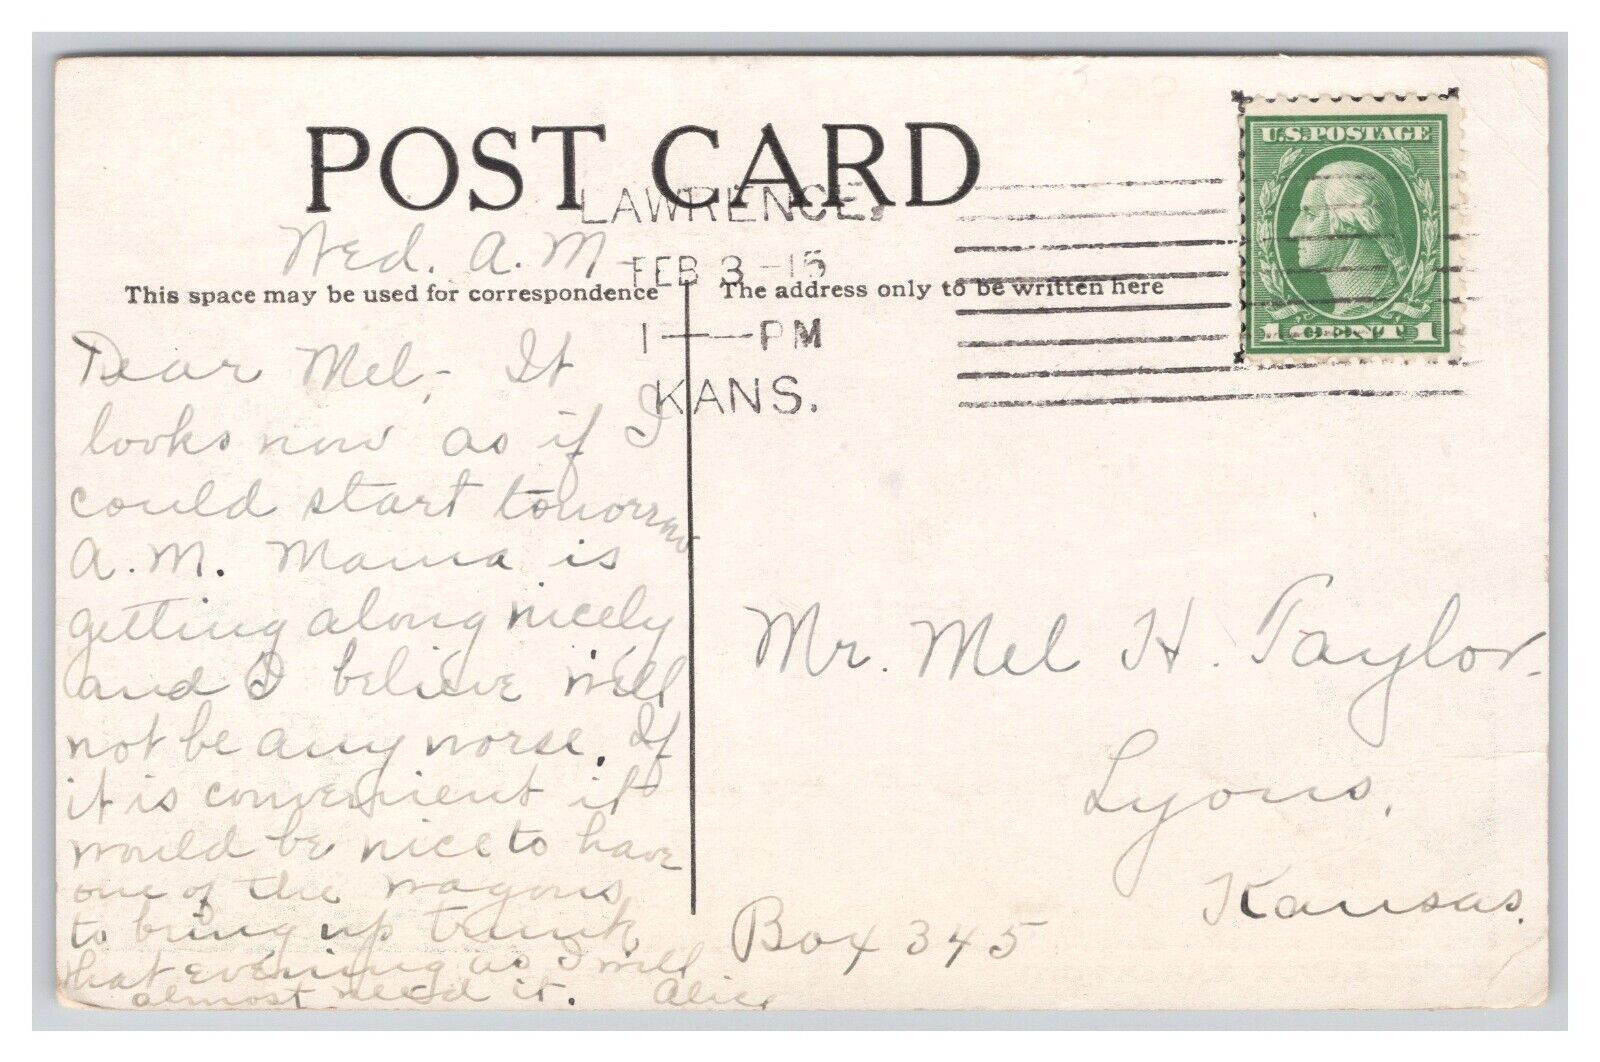 POST CARD
LAWRENCE,
FEB 3 -15
1 - PM
KANS.
U.S. POSTAGE
1 CENT 1
Wed. A.M -
This space may be used for correspondence
The address only to be written here
Dear Mel, - It
looks now as if I
could start tomorrow
A.M. Mama is
getting along nicely
and I believe will
not be any worse. If
it is convenient it
would be nice to have
one of the wagons
to bring up trunk
that evening as I will
almost need it. Alice
Mr. Mel H. Taylor.
Lyons,
Kansas.
Box 345